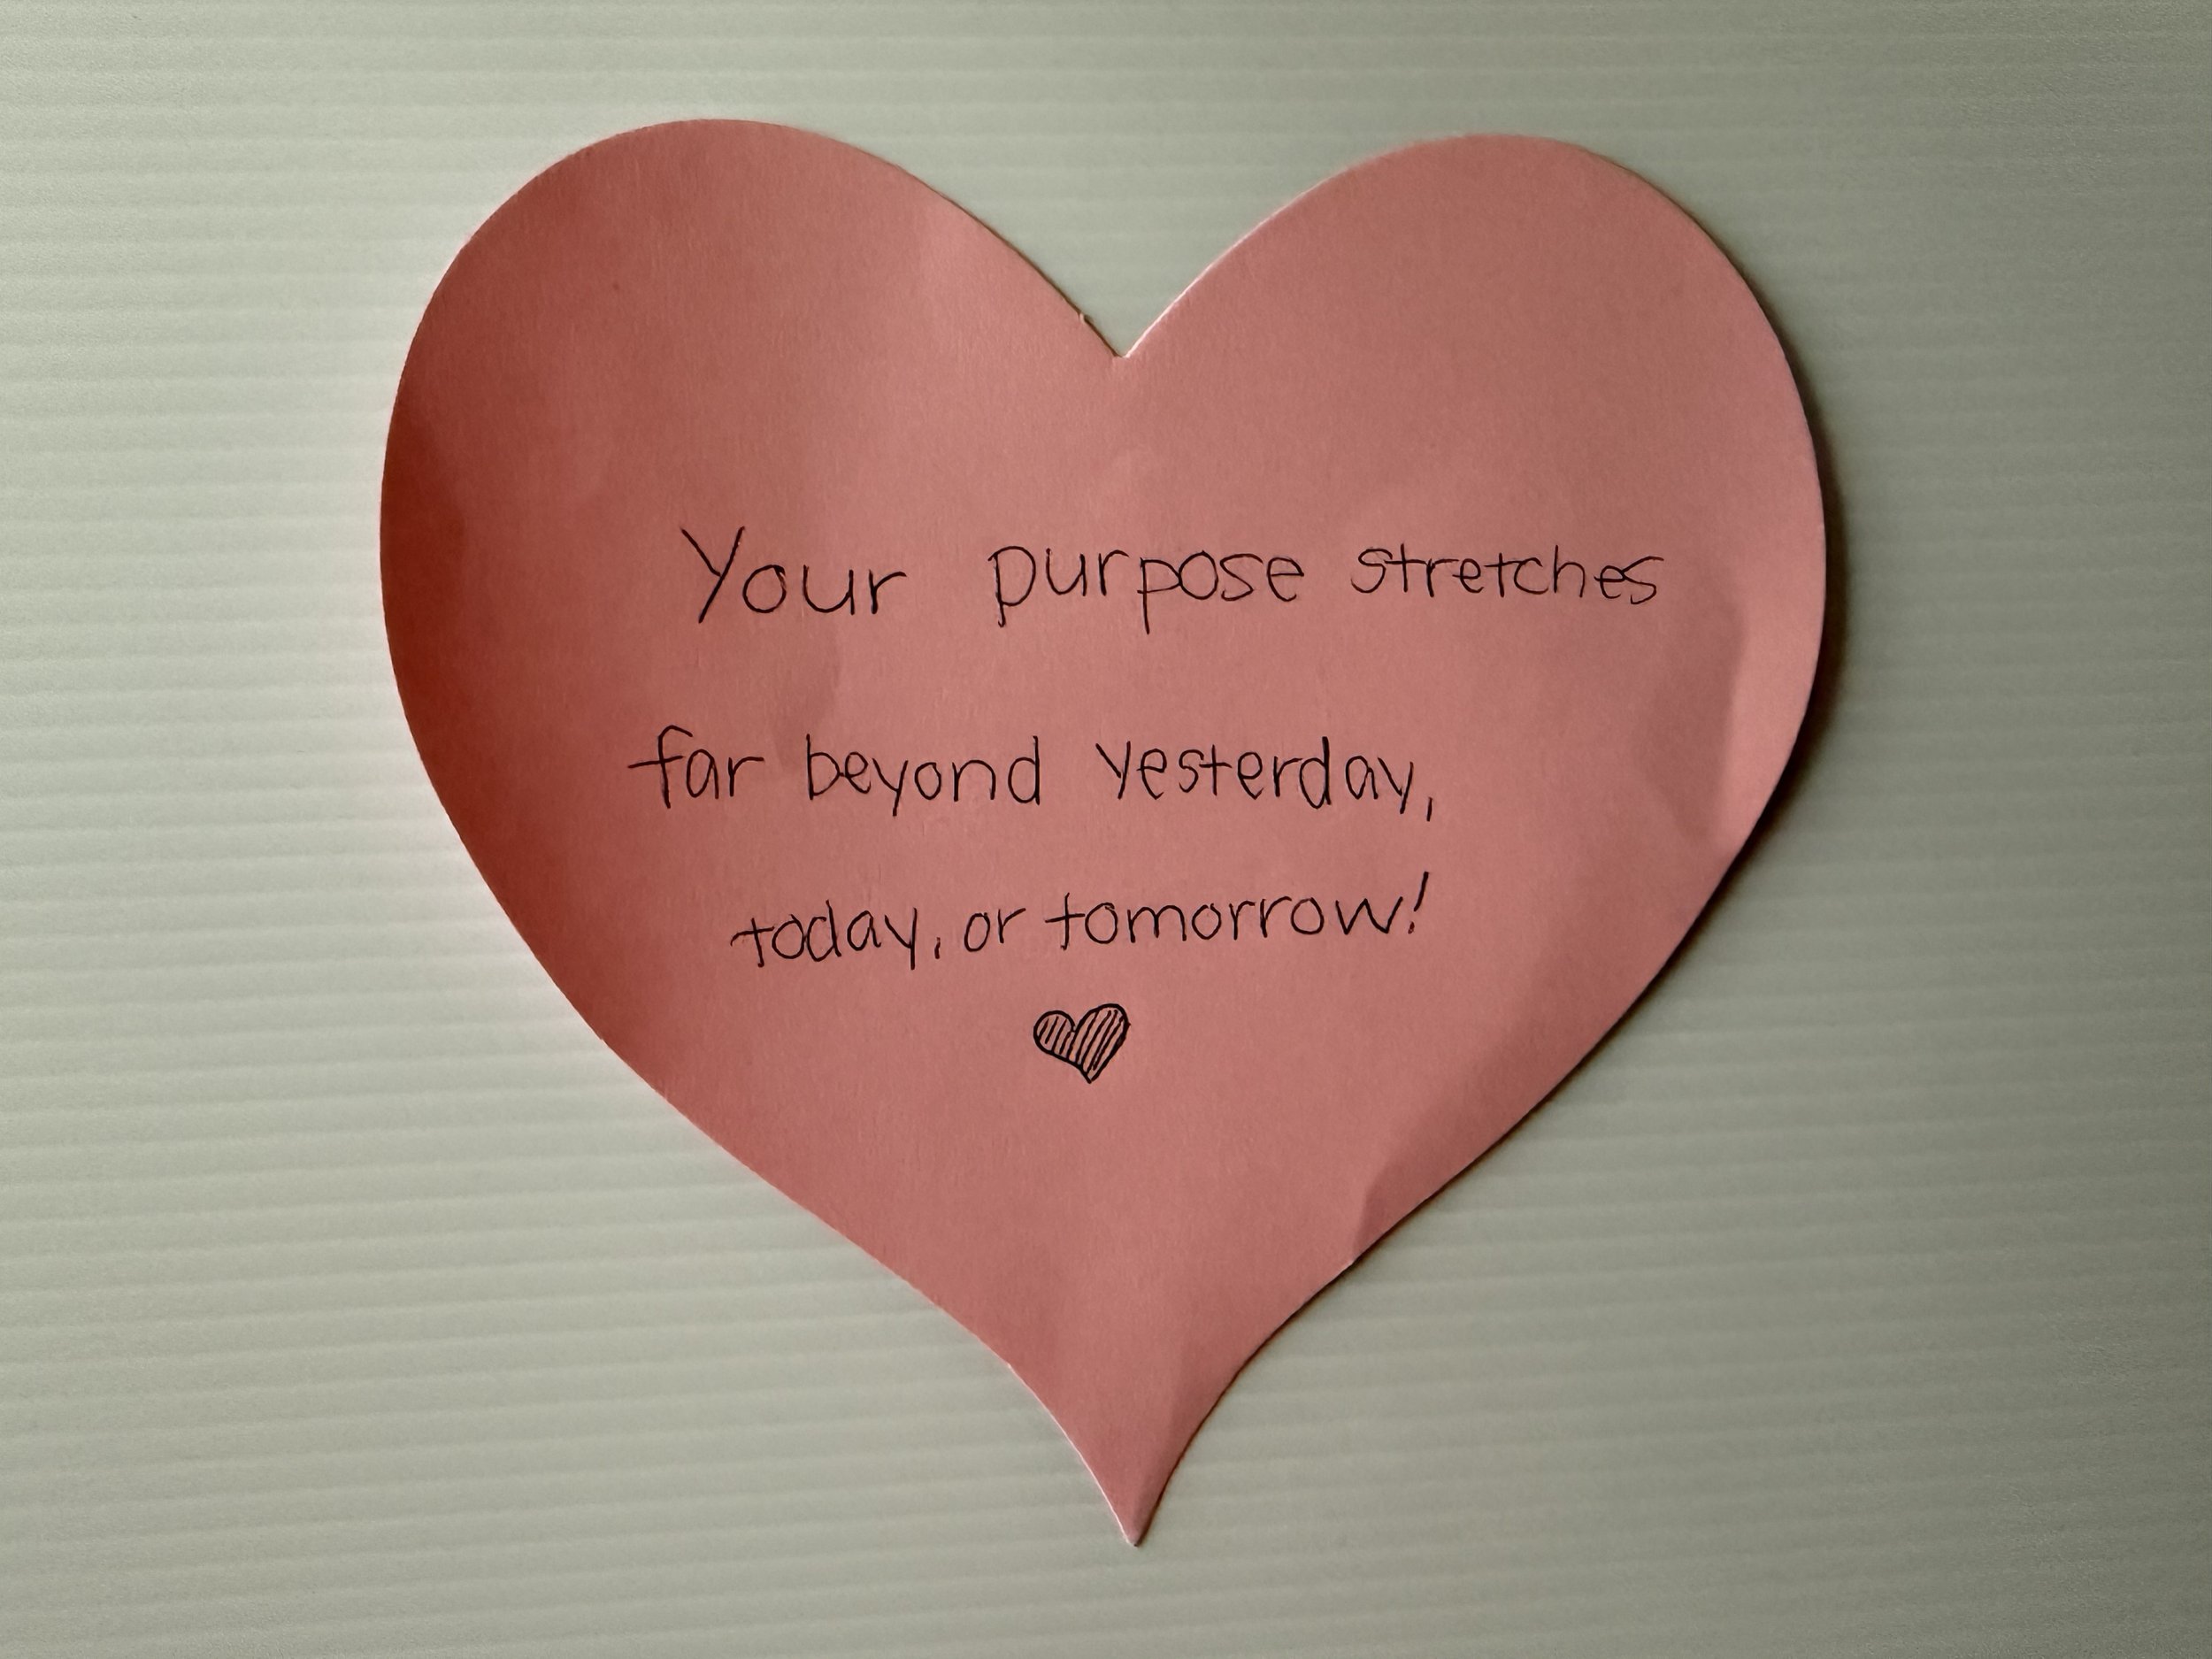 Your purpose stretches
far beyond yesterday,
today, or tomorrow!